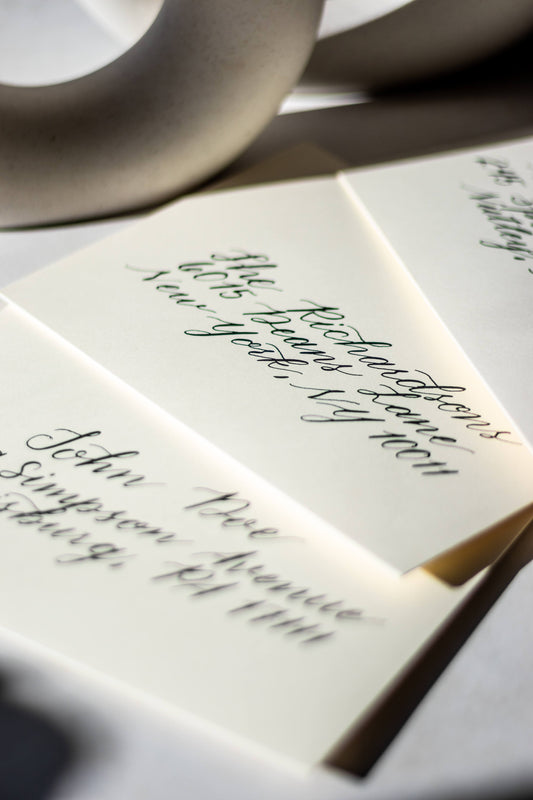 The Richardsons
6015 Deans Lane
New York, NY 10011
John Doe
Simpson Avenue
sburg, PA 17111
245
Nutley,